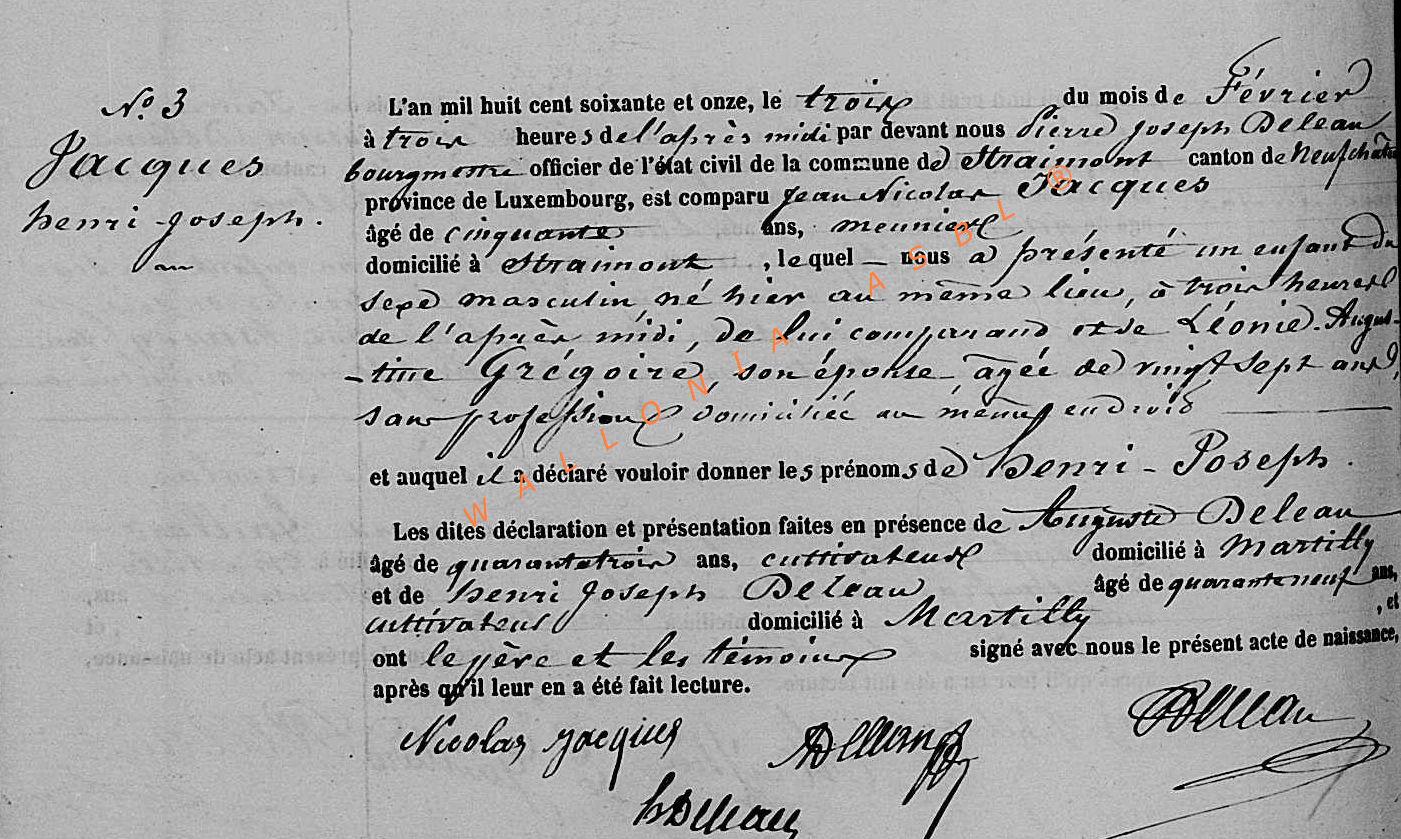 N.o 3
Jacques
henri-Joseph.
L'an mil huit cent soixante et onze, le trois du mois de Février
à trois heures de l'après midi par devant nous Pierre Joseph Deleau
bourgmestre officier de l'état civil de la commune de Straimont canton de Neufchâteau
province de Luxembourg, est comparu Jean Nicolas Jacques
âgé de cinquante ans, meunier
domicilié à Straimont, lequel — nous a présenté un enfant du
sexe masculin né hier au même lieu, à trois heures
de l'après midi, de lui comparant et de Léonie-Augus-
-tine Grégoire, son épouse, agée de vingt sept ans,
sans profession domiciliée au même endroit
et auquel il a déclaré vouloir donner les prénoms de henri - Joseph.
Les dites déclaration et présentation faites en présence de Auguste Deleau
âgé de quarante trois ans, cultivateur domicilié à Martilly
et de henri Joseph Deleau âgé de quarante neuf ans,
cultivateur domicilié à Martilly, et
ont le père et les témoins signé avec nous le présent acte de naissance,
après qu'il leur en a été fait lecture.
Nicolas Jacques ADeleau PDeleau
hDeleau
WALLONIA ASBL ®